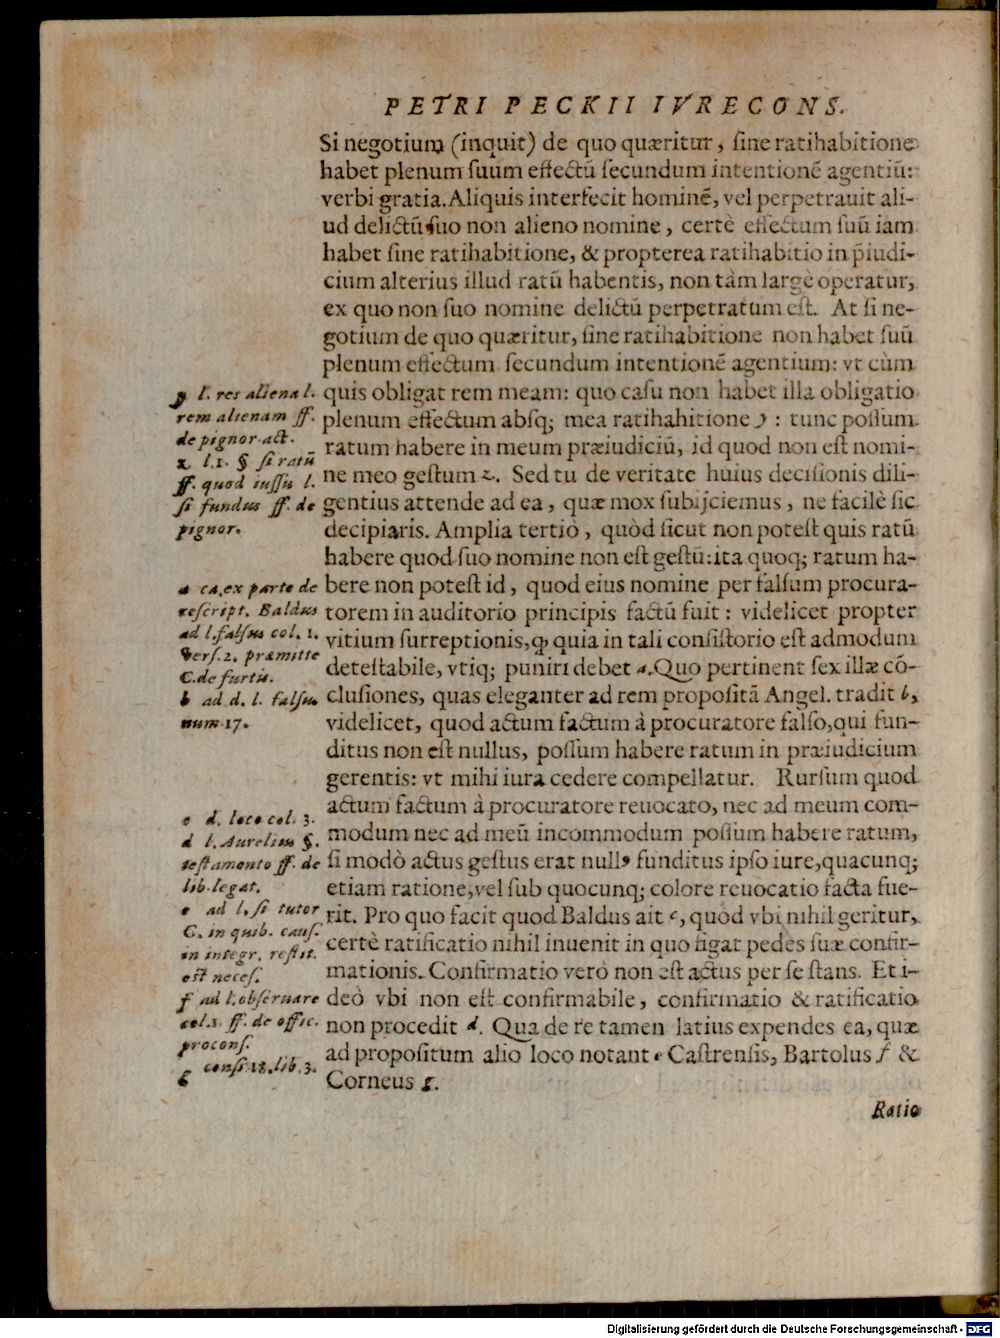 PETRI PECKII IVRECONS.
Si negotium (inquit) de quo quæritur, sine ratihabitione
habet plenum suum effectū secundum intentionē agentiū:
verbi gratia. Aliquis interfecit hominē, vel perpetrauit ali-
ud delictū suo non alieno nomine, certè effectum suū iam
habet sine ratihabitione, & propterea ratihabitio in p̄iudi-
cium alterius illud ratū habentis, non tàm largè operatur,
ex quo non suo nomine delictū perpetratum est. At si ne-
gotium de quo quæritur, sine ratihabitione non habet suū
plenum effectum secundum intentionē agentium: vt cùm
quis obligat rem meam: quo casu non habet illa obligatio
plenum effectum absq; mea ratihahitione y : tunc possum
ratum habere in meum præiudiciū, id quod non est nomi-
ne meo gestum z. Sed tu de veritate huius decisionis dili-
gentius attende ad ea, quæ mox subijciemus, ne facilè sic
decipiaris. Amplia tertiò, quòd sicut non potest quis ratū
habere quod suo nomine non est gestū: ita quoq; ratum ha-
bere non potest id, quod eius nomine per falsum procura-
torem in auditorio principis factū fuit: videlicet propter
vitium surreptionis, ꝙ quia in tali consistorio est admodum
detestabile, vtiq; puniri debet a. Quo pertinent sex illæ cō-
clusiones, quas eleganter ad rem propositā Angel. tradit b,
videlicet, quod actum factum à procuratore falso, qui fun-
ditus non est nullus, possum habere ratum in præiudicium
gerentis: vt mihi iura cedere compellatur. Rursum quod
actum factum à procuratore reuocato, nec ad meum com-
modum nec ad meū incommodum possum habere ratum,
si modò actus gestus erat nullꝰ funditus ipso iure, quacunq;
etiam ratione, vel sub quocunq; colore reuocatio facta fue-
rit. Pro quo facit quod Baldus ait c, quòd vbi nihil geritur,
certè ratificatio nihil inuenit in quo figat pedes suæ confir-
mationis. Confirmatio verò non est actus per se stans. Et i-
deò vbi non est confirmabile, confirmatio & ratificatio
non procedit d. Qua de re tamen latius expendes ea, quæ
ad propositum alio loco notant e Castrensis, Bartolus f &
Corneus g.
Ratio
y l. res aliena l.
rem alienam ff.
de pignor. act.
z l.1. § si ratū
ff. quod iussu l.
si fundus ff. de
pignor.
a ca. ex parte de
rescript. Baldus
ad l. falsus col. 1.
vers. 2. præmitte
C. de furtis.
b ad d. l. falsus
num 17.
c d. loco col. 3.
d l. Aurelius §.
testamento ff. de
lib. legat.
e ad l. si tutor
C. in quib. caus.
in integr. restit.
est neces.
f ad l. obseruare
col.1. ff. de offic.
procons.
g consi. 18. lib. 3.
Digitalisierung gefördert durch die Deutsche Forschungsgemeinschaft - DFG